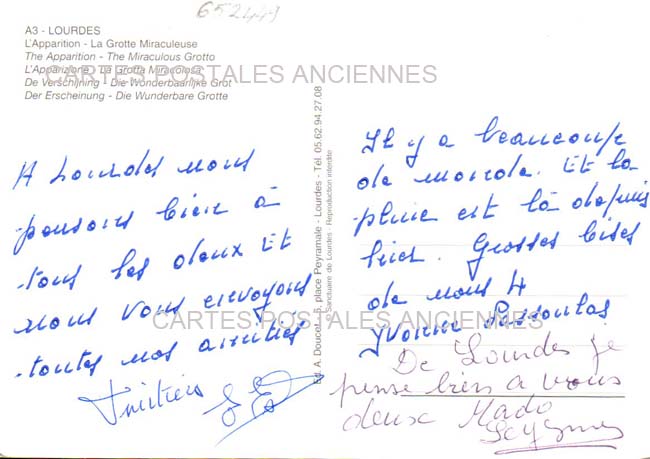 652449
A3 - LOURDES
L'Apparition - La Grotte Miraculeuse
The Apparition - The Miraculous Grotto
L'Apparizione - La Grotta Miracolosa
De Verschijning - Die Wonderbaarlijke Grot
Der Erscheinung - Die Wunderbare Grotte
CARTES POSTALES ANCIENNES
A Lourdes nous
pensons bien à
tous les deux et
nous vous envoyons
toutes nos amitiés
Ed. A. Doucet - 5, place Peyramale - Lourdes - Tél. 05.62.94.27.08
© Sanctuaire de Lourdes - Reproduction interdite
Il y a beaucoup
de monde. Et la
pluie est là depuis
hier. Grosses bises
de nous 4
Yvonne
CARTES POSTALES ANCIENNES
De Lourdes je
pense bien a vous
deux Mado